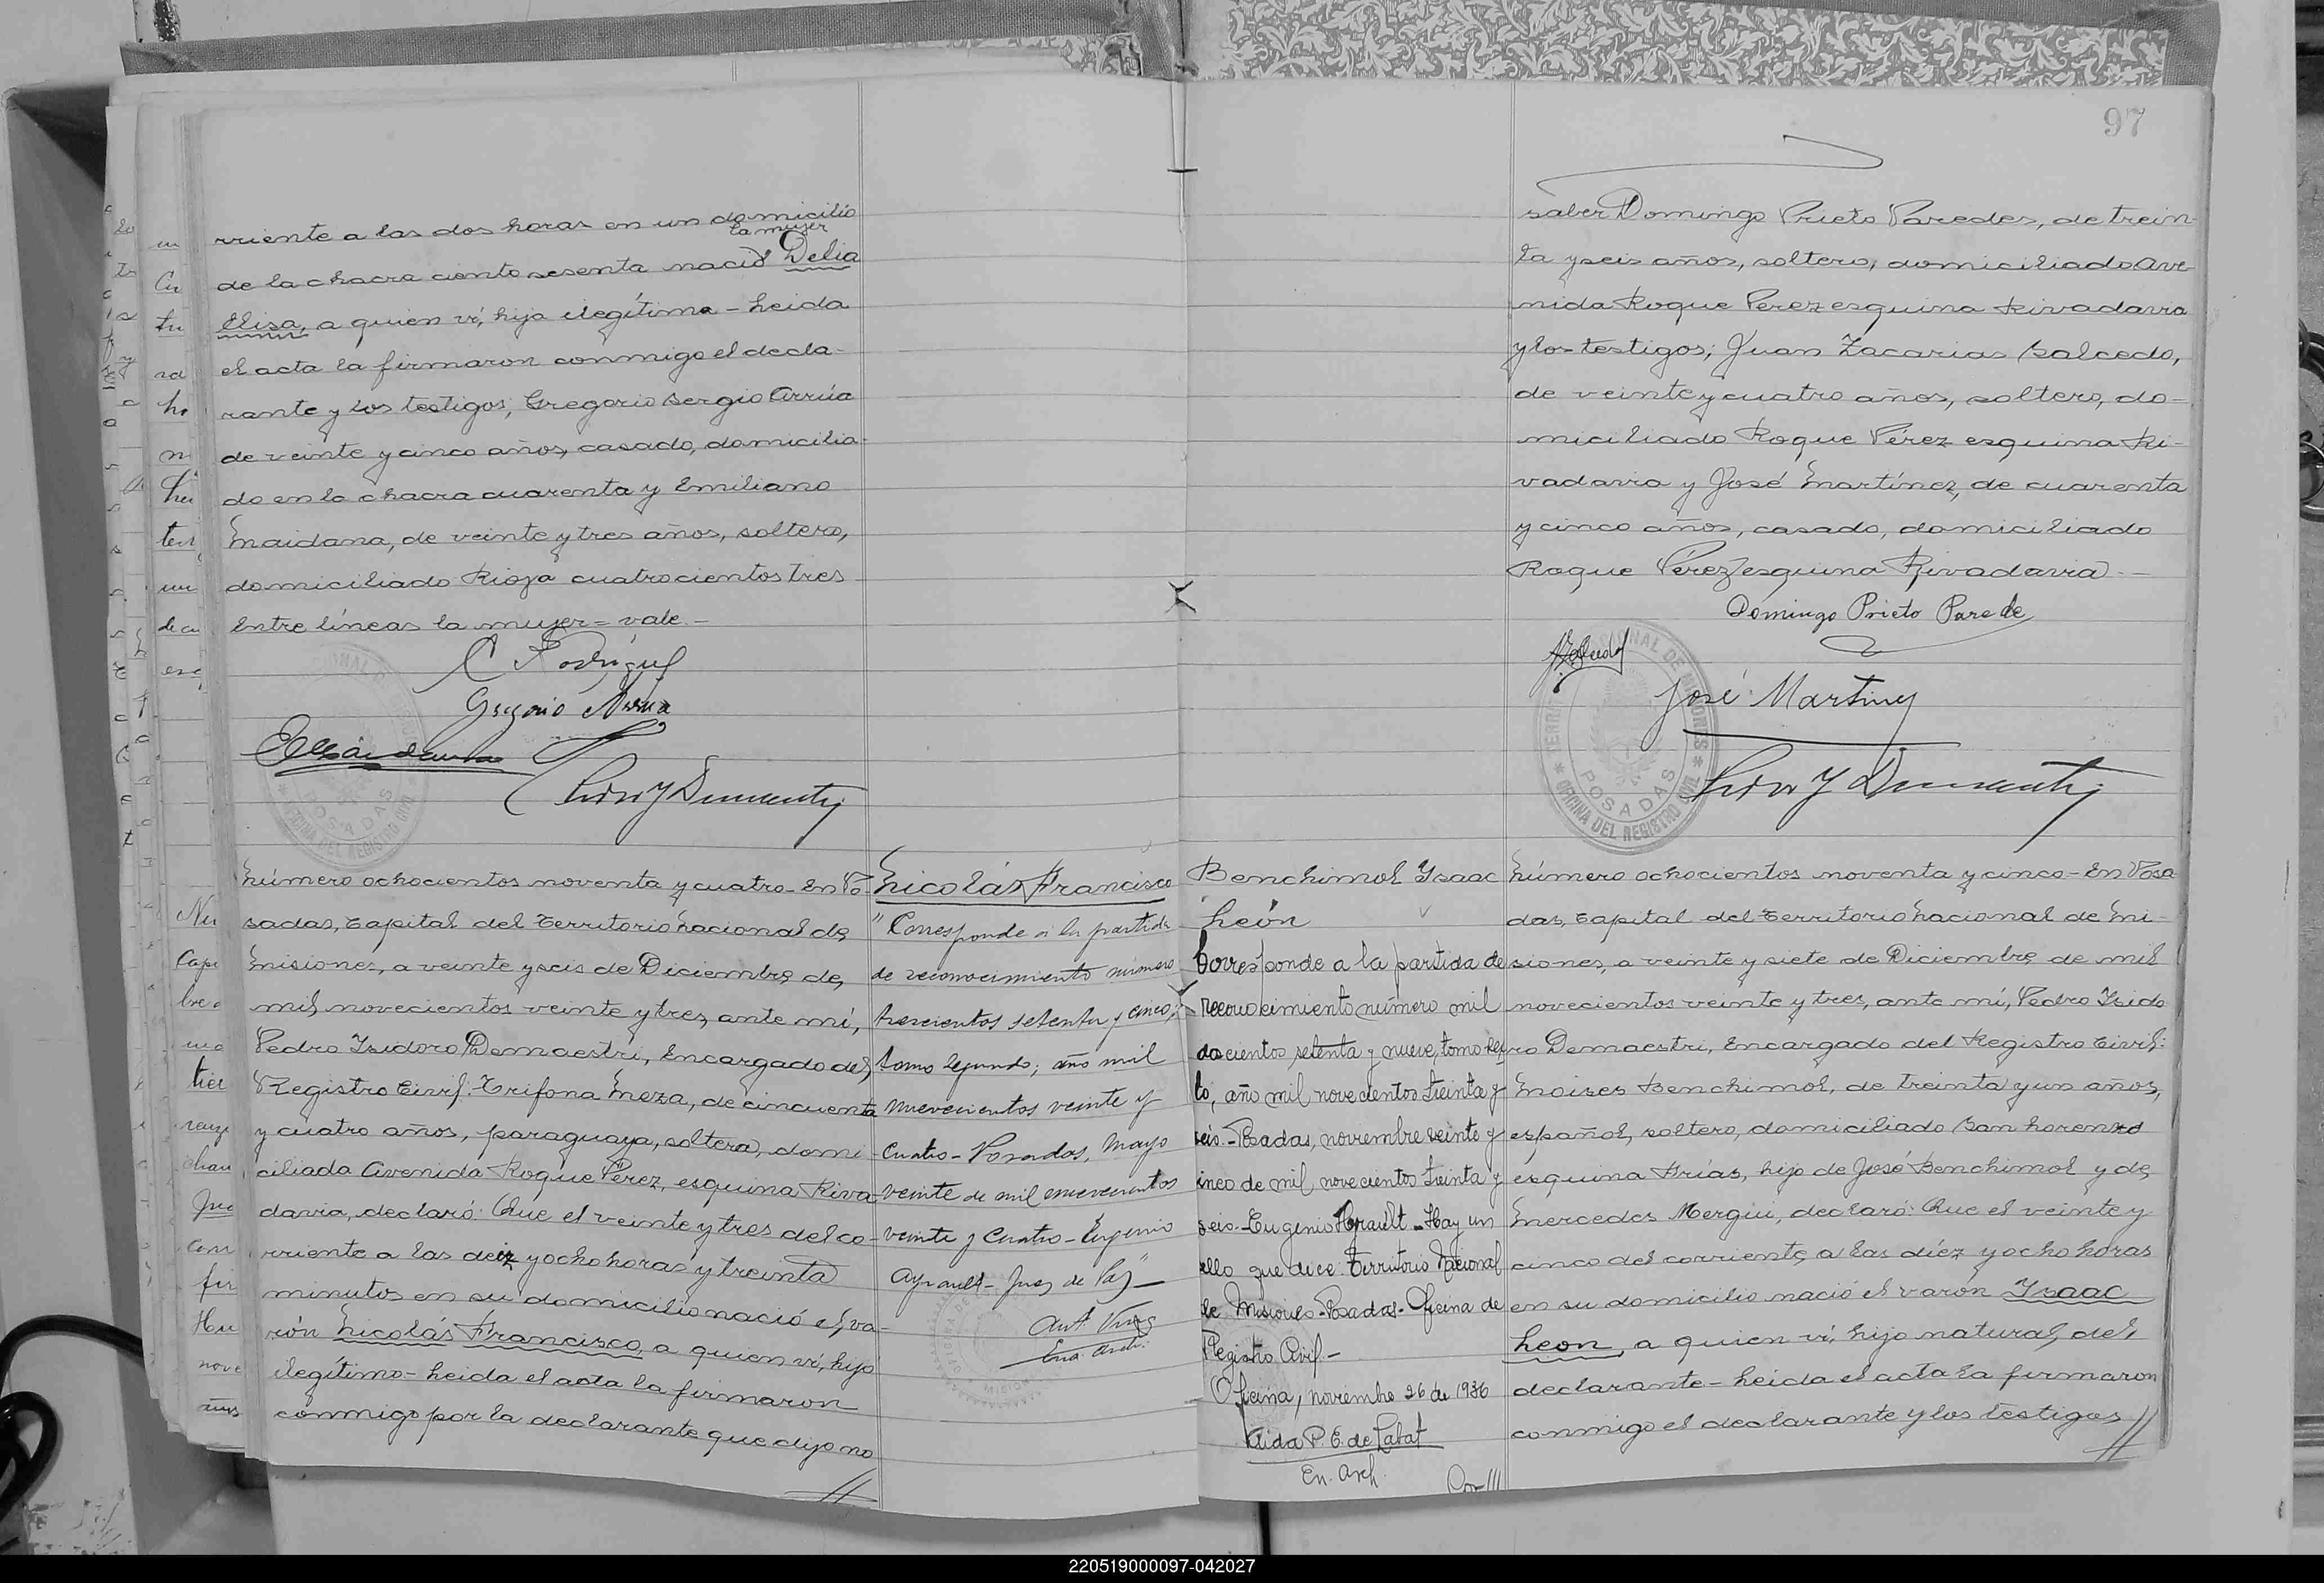 rriente a las dos horas en un domicilio
la mujer
de la chacra ciento sesenta nació Delia
Elisa, a quien ví, hija ilegítima - Leida
el acta la firmaron conmigo el decla-
rante y los testigos; Gregorio Sergio Arrúa
de veinte y cinco años, casado, domicilia-
do en la chacra cuarenta y Emiliano
Maidana, de veinte y tres años, soltero,
domiciliado Rioja cuatrocientos tres
Entre líneas la mujer = vale -
C Rodríguez
Gregorio Arrua
Número ochocientos noventa y cuatro - En Po-
sadas, Capital del Territorio Nacional de
Misiones, a veinte y seis de Diciembre de
mil novecientos veinte y tres, ante mí,
Pedro Isidoro Demaestri, Encargado del
Registro Civil: Trifona Meza, de cincuenta
y cuatro años, paraguaya, soltera, domi-
ciliada Avenida Roque Pérez, esquina Riva-
davia, declaró: Que el veinte y tres del co-
rriente a las deiz y ocho horas y treinta
minutos en su domicilio nació el va-
rón Nicolás Francisco, a quien ví, hijo
ilegítimo - Leida el acta la firmaron
conmigo por la declarante que dijo no
Nicolás Francisco
"Corresponde a la partida
de reconocimiento número
trescientos setenta y cinco;
tomo segundo; año mil
novecientos veinte y
cuatro - Posadas, Mayo
veinte de mil novecientos
veinte y cuatro - Eugenio
Ayrault - Juez de Paz" -
97
saber Domingo Prieto Paredes, de trein-
ta y seis años, soltero, domiciliado Ave-
nida Roque Perez esquina Rivadavia
y los testigos; Juan Zacarias Salcedo,
de veinte y cuatro años, soltero, do-
miciliado Roque Pérez esquina Ri-
vadavia y José Martínez, de cuarenta
y cinco años, casado, domiciliado
Roque Pérez esquina Rivadavia -
Domingo Prieto Parede
José Martinez
TERRITORIO NACIONAL DE MISIONES
POSADAS
OFICINA DEL REGISTRO CIVIL
Benchimol Isaac
León
Corresponde a la partida de
reconocimiento número mil
doscientos setenta y nueve, tomo sex
to, año mil novecientos treinta y
seis - Posadas, noviembre veinte y
inco de mil novecientos treinta y
seis - Eugenio Ayrault - Hay un
ello que dice: Territorio Nacional
de Misiones - Posadas - Oficina de
Registro Civil -
Oficina, noviembre 26 de 1936
Aida P. E. de Labat
En. Arch.
Número ochocientos noventa y cinco - En Posa-
das, Capital del Territorio Nacional de Mi-
siones, a veinte y siete de Diciembre de mil
novecientos veinte y tres, ante mí, Pedro Isido-
ro Demaestri, Encargado del Registro Civil:
Moises Benchimol, de treinta y un años,
español, soltero, domiciliado San Lorenzo
esquina Frías, hijo de José Benchimol y de
Mercedes Mergui, declaró: Que el veinte y
cinco del corriente a las diez y ocho horas
en su domicilio nació el varón Isaac
Leon, a quien ví, hijo natural del
declarante - Leida el acta la firmaron
conmigo el declarante y los testigos
220519000097-042027